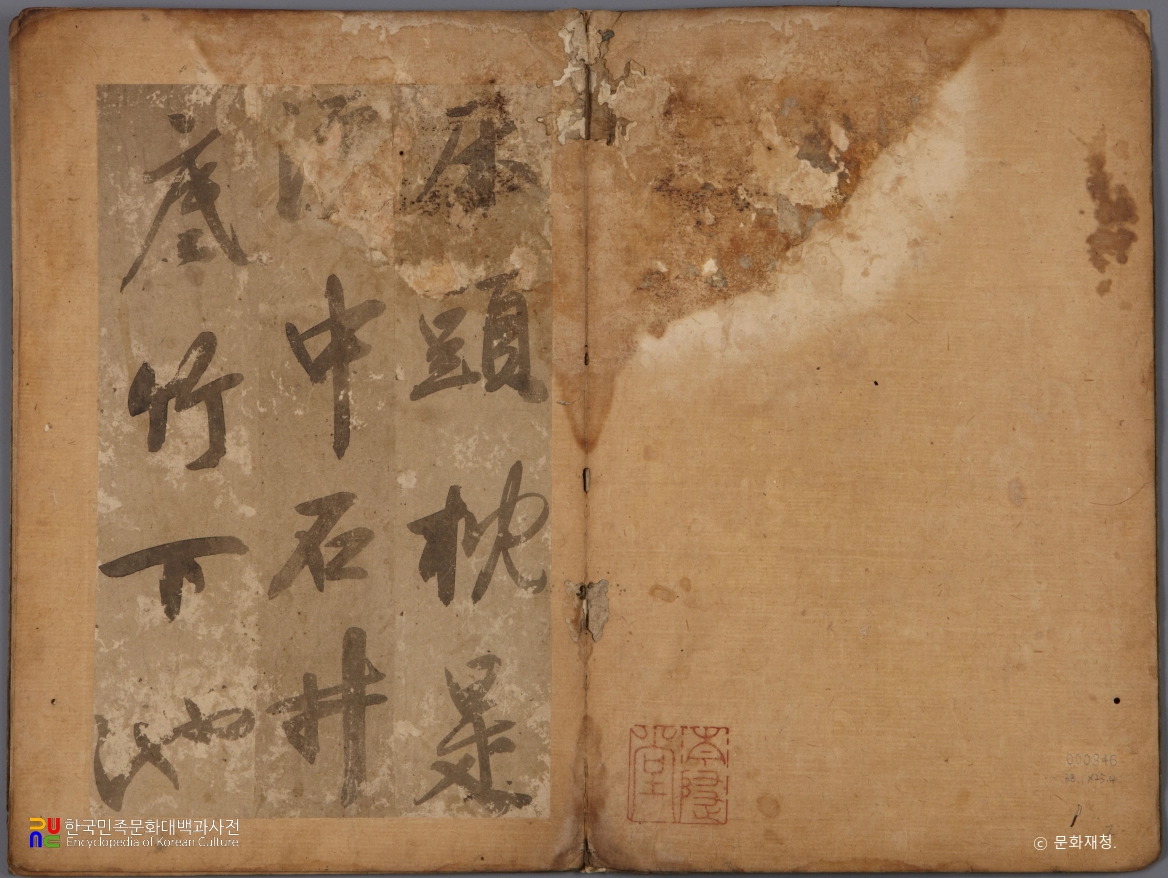 床頭枕是
中石井
底竹下池
000846
한국민족문화대백과사전
Encyclopedia of Korean Culture
© 문화재청.